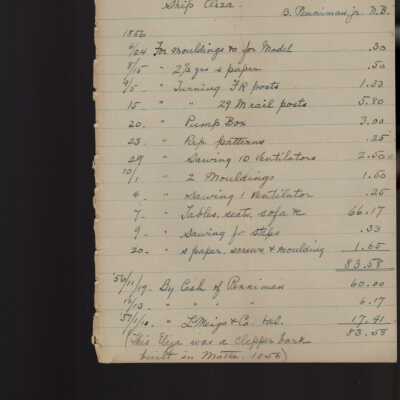 Ship Eliza.
B. Penniman jr. N.B.
1856
6/24 For mouldings &c for Model .30
8/15 " 2 1/2 qrs s paper .50
9/5 " Turning FR posts 1.33
15 " " 29 M rail posts 5.80
20. " Pump Box 3.00
23. " Rep. patterns .25
29 " Sawing 10 Ventilators 2.50
10/1 " 2 Mouldings 1.60
4 " Sawing 1 Ventilator .25
7. " Tables, seats, sofa &c 66.17
9. " Sawing for steps .33
20. " s paper, screws & moulding 1.65
83.58
'56/11/19. By Cash of Penniman 60.00
12/13. " " " " 6.17
'57/1/10. " & Co. bal. 17.41
83.58
(This was a clipper bark
built in Matta. 1856)